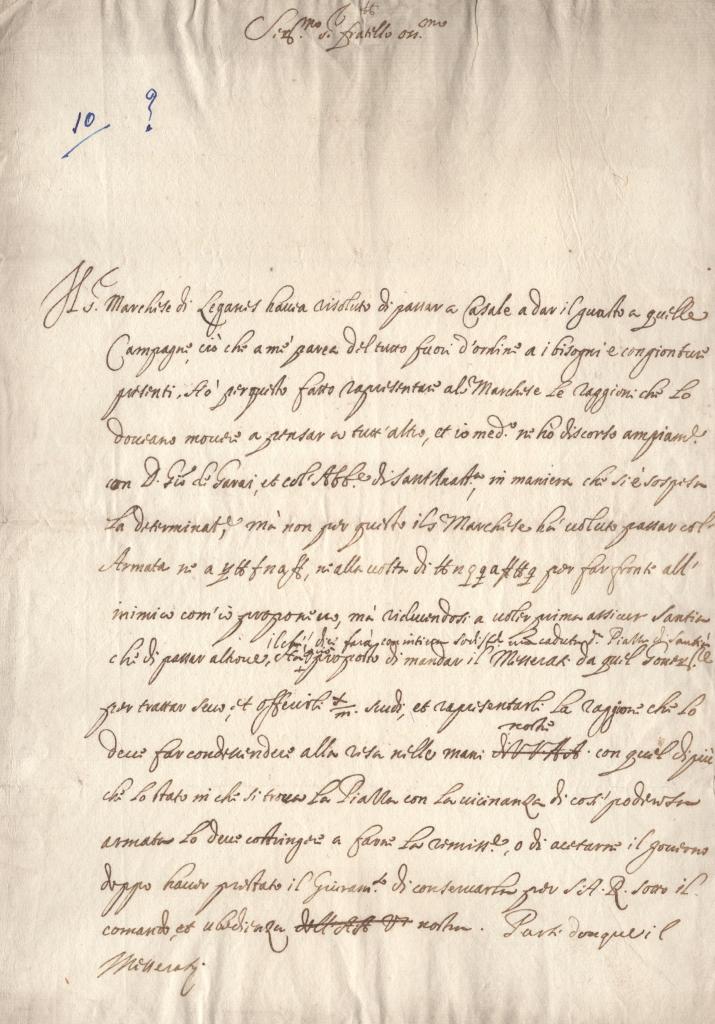 Ser.mo S.r fratello oss.mo
10 ?
Il S.r Marchese di Leganes havea risoluto di passar a Casale a dar il guasto a quelle
Campagne, ciò che a mé parea del tutto fuori d'ordine a i bisogni e congionture
presenti. Hò perquesto fatto rapresentare al S.r Marchese le raggioni che lo
doveano movere a pensar a tutt'altro, et io med.o ne hò discorso ampiam.te
con D. Gio de Garai, et col'Abb.e di
in maniera che si è sospesa
la determinat.e, mà non per questo il S.r Marchese hà voluto passar col
Armata ne a
ne alla volta di
per far fronte all'
inimico com'io proponevo, mà riducendosi a voler prima assicurar Santià
che di passar altrove,
proposto di mandar il Messerati da quel Govern.re
per trattar seco, et offerirli
scudi, et rapresentarli la raggione che lo
deve far condescendere alla resa nelle mani nostre con quel di più
che lo stato in che si trova la Piazza con la vicinanza di così poderosa
armata lo deve costringere a farne la remiss.e, o di acetarne il governo
doppo haver prestato il Giuram.to di conservarla per S.A.R. sotto il
comando et ubedienza dell'AA VV nostra. Partì donque il
Messerati.